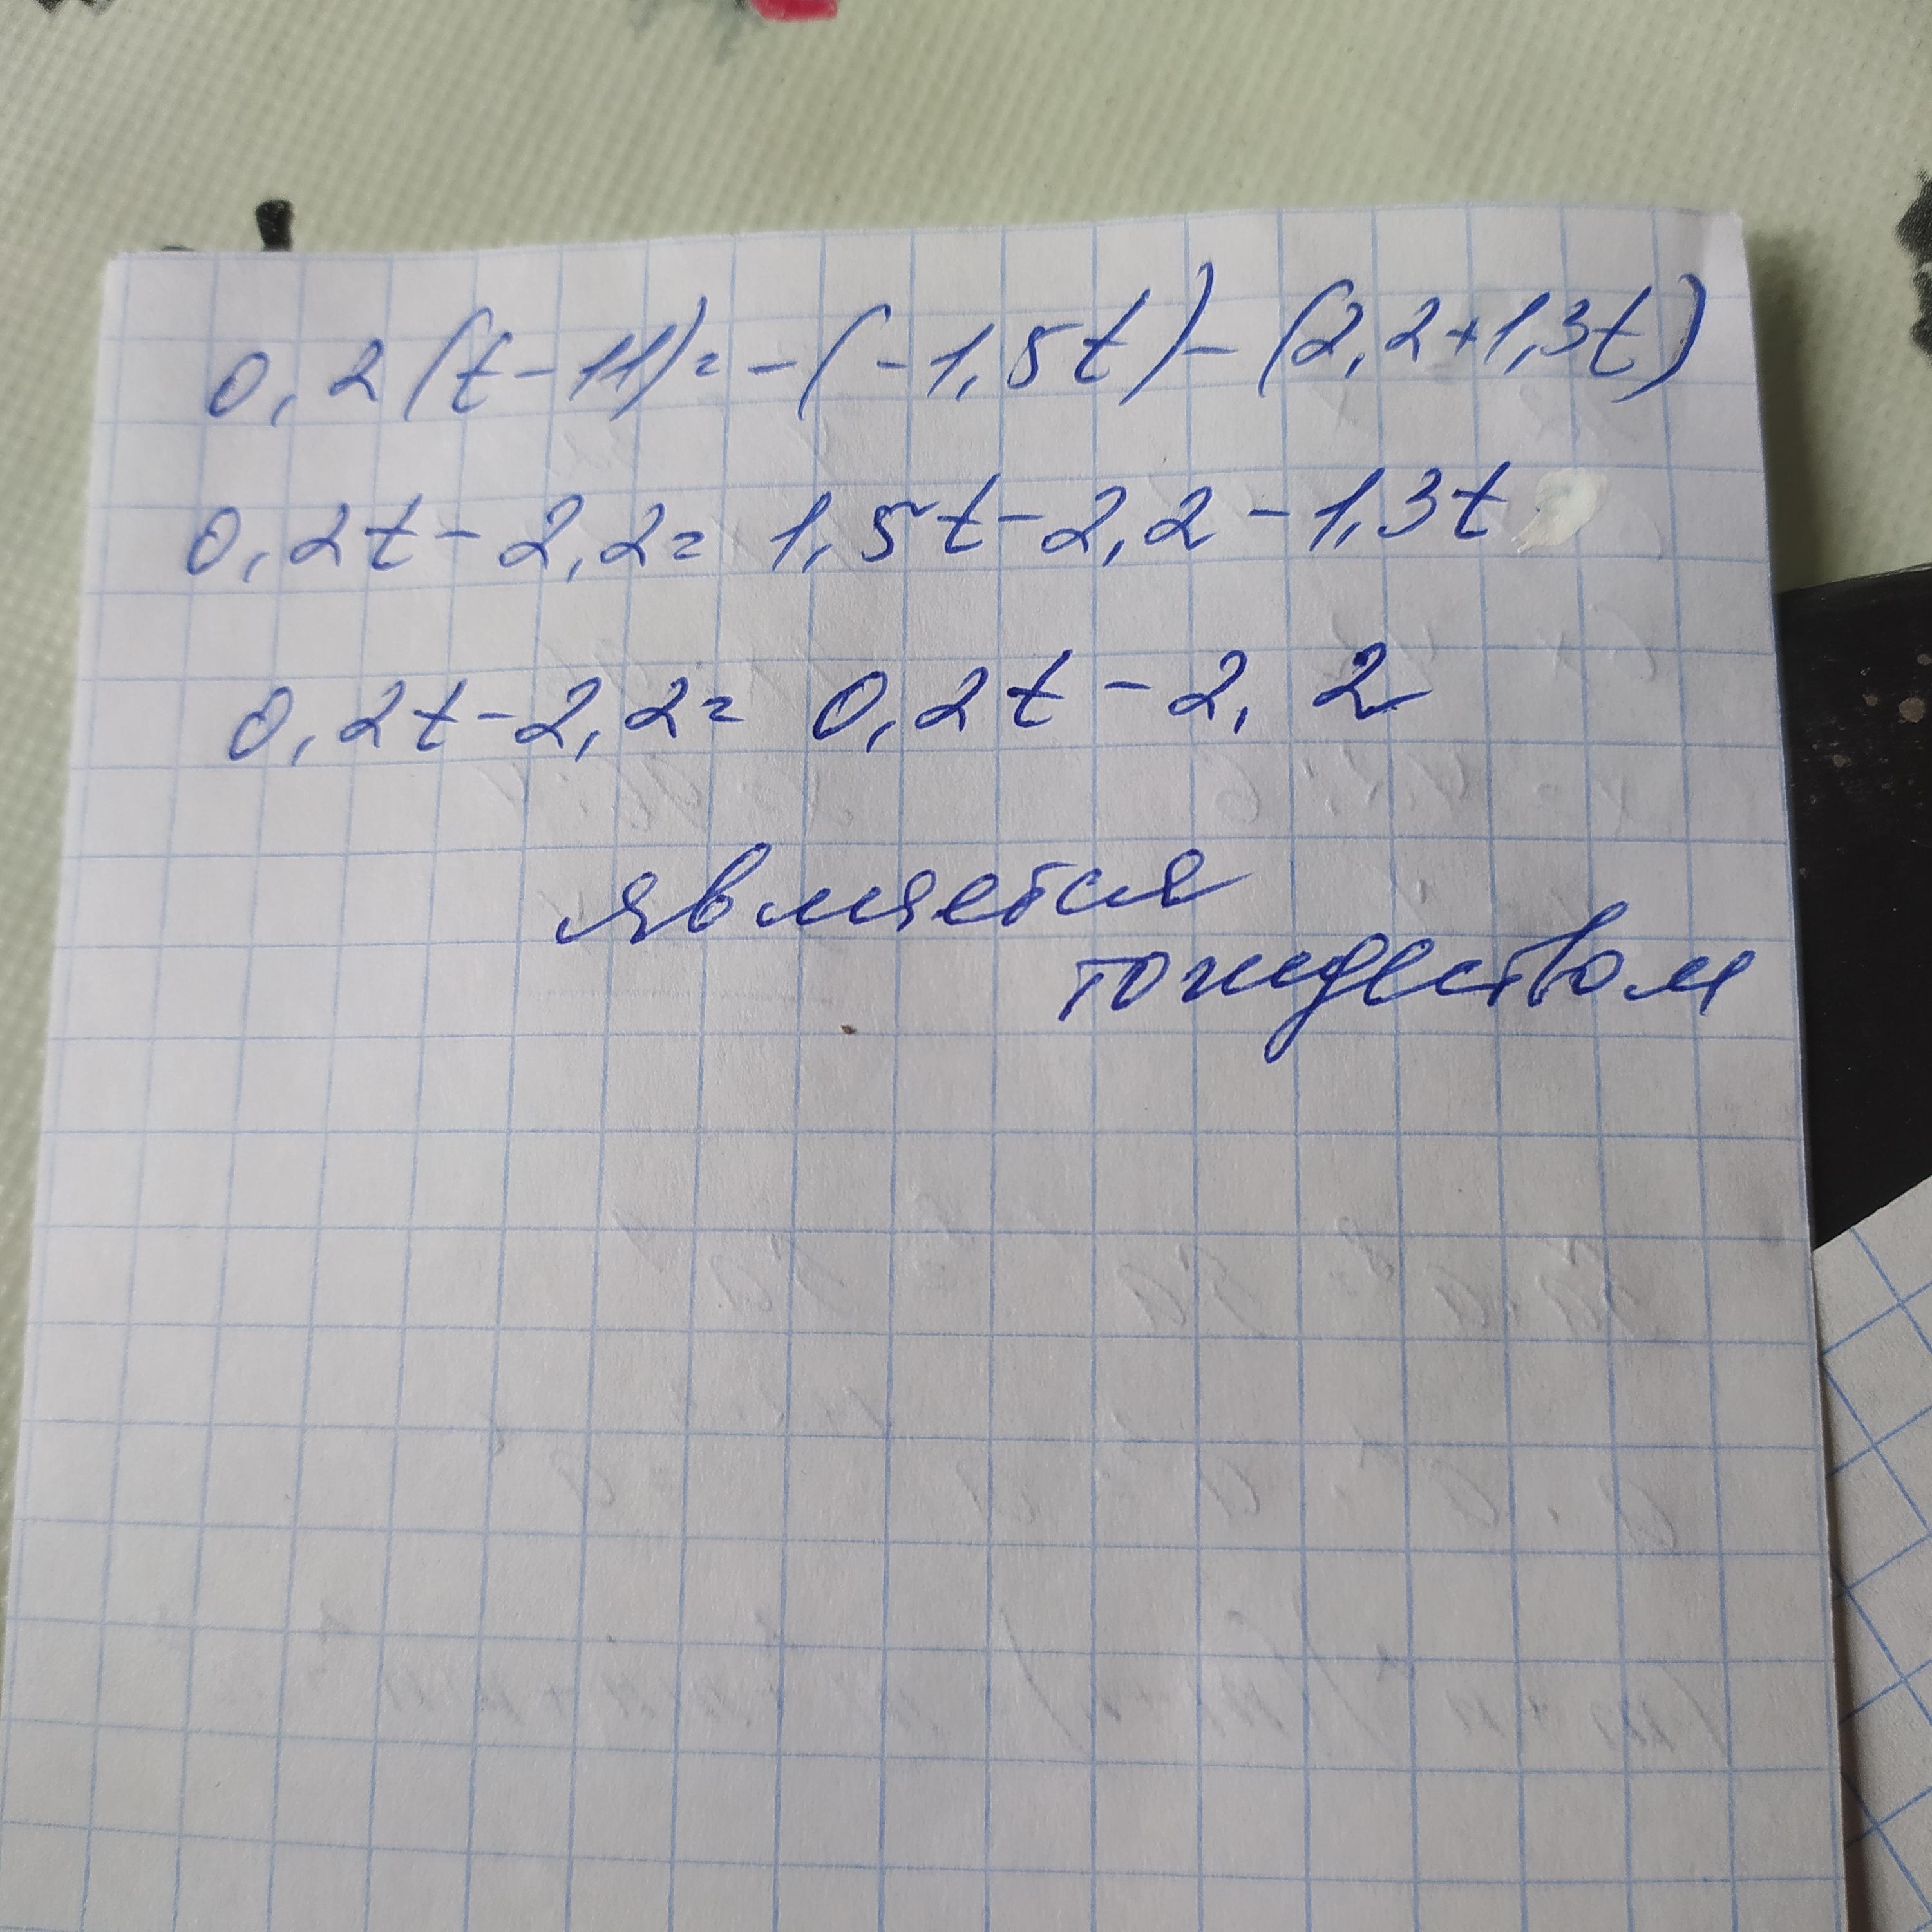 0,2(t-11)=-(-1,5t)-(2,2+1,3t)
0,2t-2,2=1,5t-2,2-1,3t
0,2t-2,2=0,2t-2,2
является
тождеством